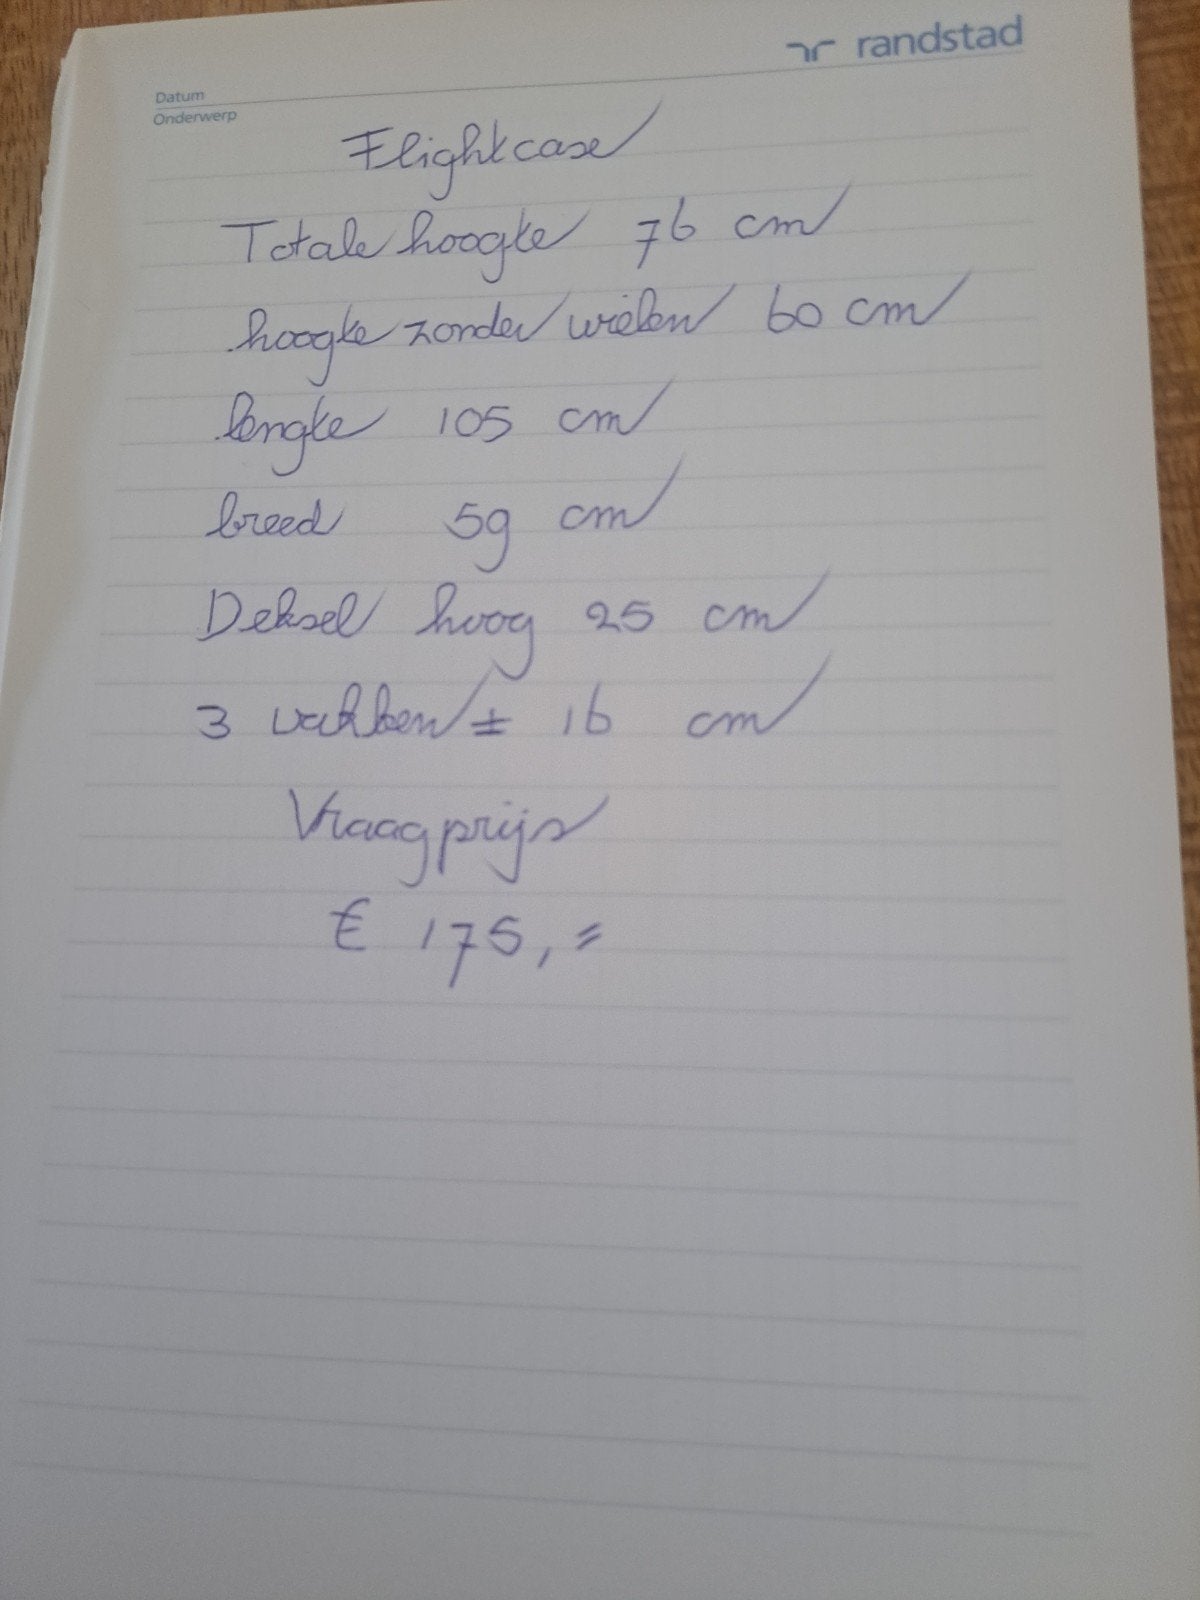 randstad
Datum
Onderwerp
Flightcase
Totale hoogte 76 cm
hoogte zonder wielen 60 cm
lengte 105 cm
breed 59 cm
Deksel hoog 25 cm
3 vakken ± 16 cm
Vraagprijs
€ 175,=